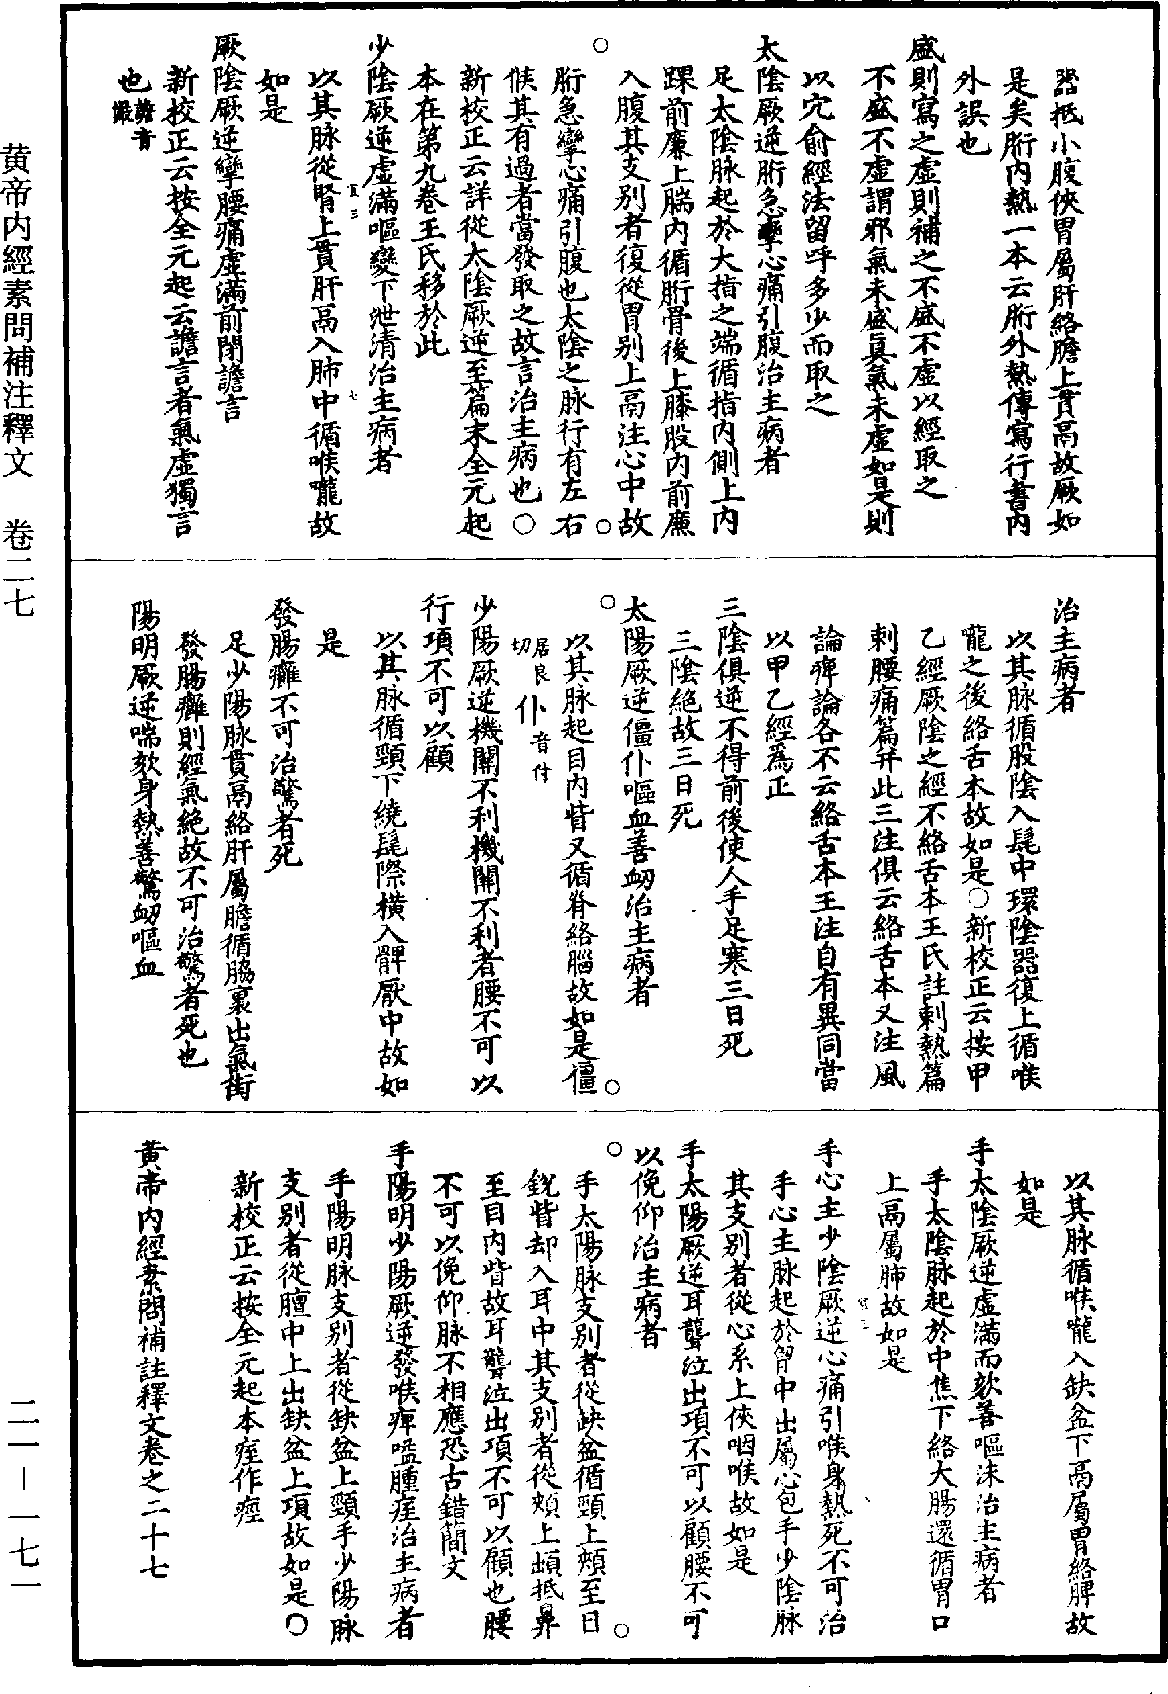 黄帝内經素問補注釋文　卷二七
二一—一七一
器抵小腹俠胃屬肝絡膽上貫鬲故厥如
是矣䯒内熱一本云䯒外熱傳寫行書内
外誤也
盛則寫之虛則補之不盛不虛以經取之
不盛不虛謂邪氣未盛真氣未虛如是則
以穴俞經法留呼多少而取之
太陰厥逆䯒急攣心痛引腹治主病者
足太陰脉起於大指之端循指内側上内
踝前廉上腨内循䯒骨後上膝股内前廉
入腹其支别者復從胃别上鬲注心中故
䯒急攣心痛引腹也太陰之脉行有左右
候其有過者當發取之故言治主病也○
新校正云詳從太陰厥逆至篇末全元起
本在第九卷王氏移於此
少陰厥逆虛滿嘔變下泄清治主病者
以其脉從腎上貫肝鬲入肺中循喉嚨故
如是
厥陰厥逆攣腰痛虛滿前閉譫言
新校正云按全元起云譫言者氣虛獨言
也譫音嚴
治主病者
以其脉循股陰入髦中環陰器復上循喉
嚨之後絡舌本故如是○新校正云按甲
乙經厥陰之經不絡舌本王氏註刺熱篇
刺腰痛篇并此三注俱云絡舌本又注風
論痺論各不云絡舌本王注自有異同當
以甲乙經爲正
三陰俱逆不得前後使人手足寒三日死
三陰絕故三日死
太陽厥逆僵仆嘔血善衂治主病者
以其脉起目内眥又循脊絡腦故如是僵
居良切仆音付
少陽厥逆機關不利機關不利者腰不可以
行項不可以顧
以其脉循頸下繞髦際橫入髀厭中故如
是
發腸癰不可治驚者死
足少陽脉貫鬲絡肝屬膽循脇裏出氣街
發腸癰則經氣絕故不可治驚者死也
陽明厥逆喘欬身熱善驚衂嘔血
以其脉循喉嚨入缺盆下鬲屬胃絡脾故
如是
手太陰厥逆虛滿而欬善嘔沫治主病者
手太陰脉起於中焦下絡大腸還循胃口
上鬲屬肺故如是
手心主少陰厥逆心痛引喉身熱死不可治
手心主脉起於胷中出屬心包手少陰脉
其支别者從心系上俠咽喉故如是
手太陽厥逆耳聾泣出項不可以顧腰不可
以俛仰治主病者
手太陽脉支别者從缺盆循頸上頰至目
銳眥却入耳中其支别者從頰上䪼抵鼻
至目内眥故耳聾泣出項不可以顧也腰
不可以俛仰脉不相應恐古錯簡文
手陽明少陽厥逆發喉痺嗌腫痓治主病者
手陽明脉支别者從缺盆上頸手少陽脉
支别者從膻中上出缺盆上項故如是○
新校正云按全元起本痓作痙
黄帝内經素問補註釋文卷之二十七